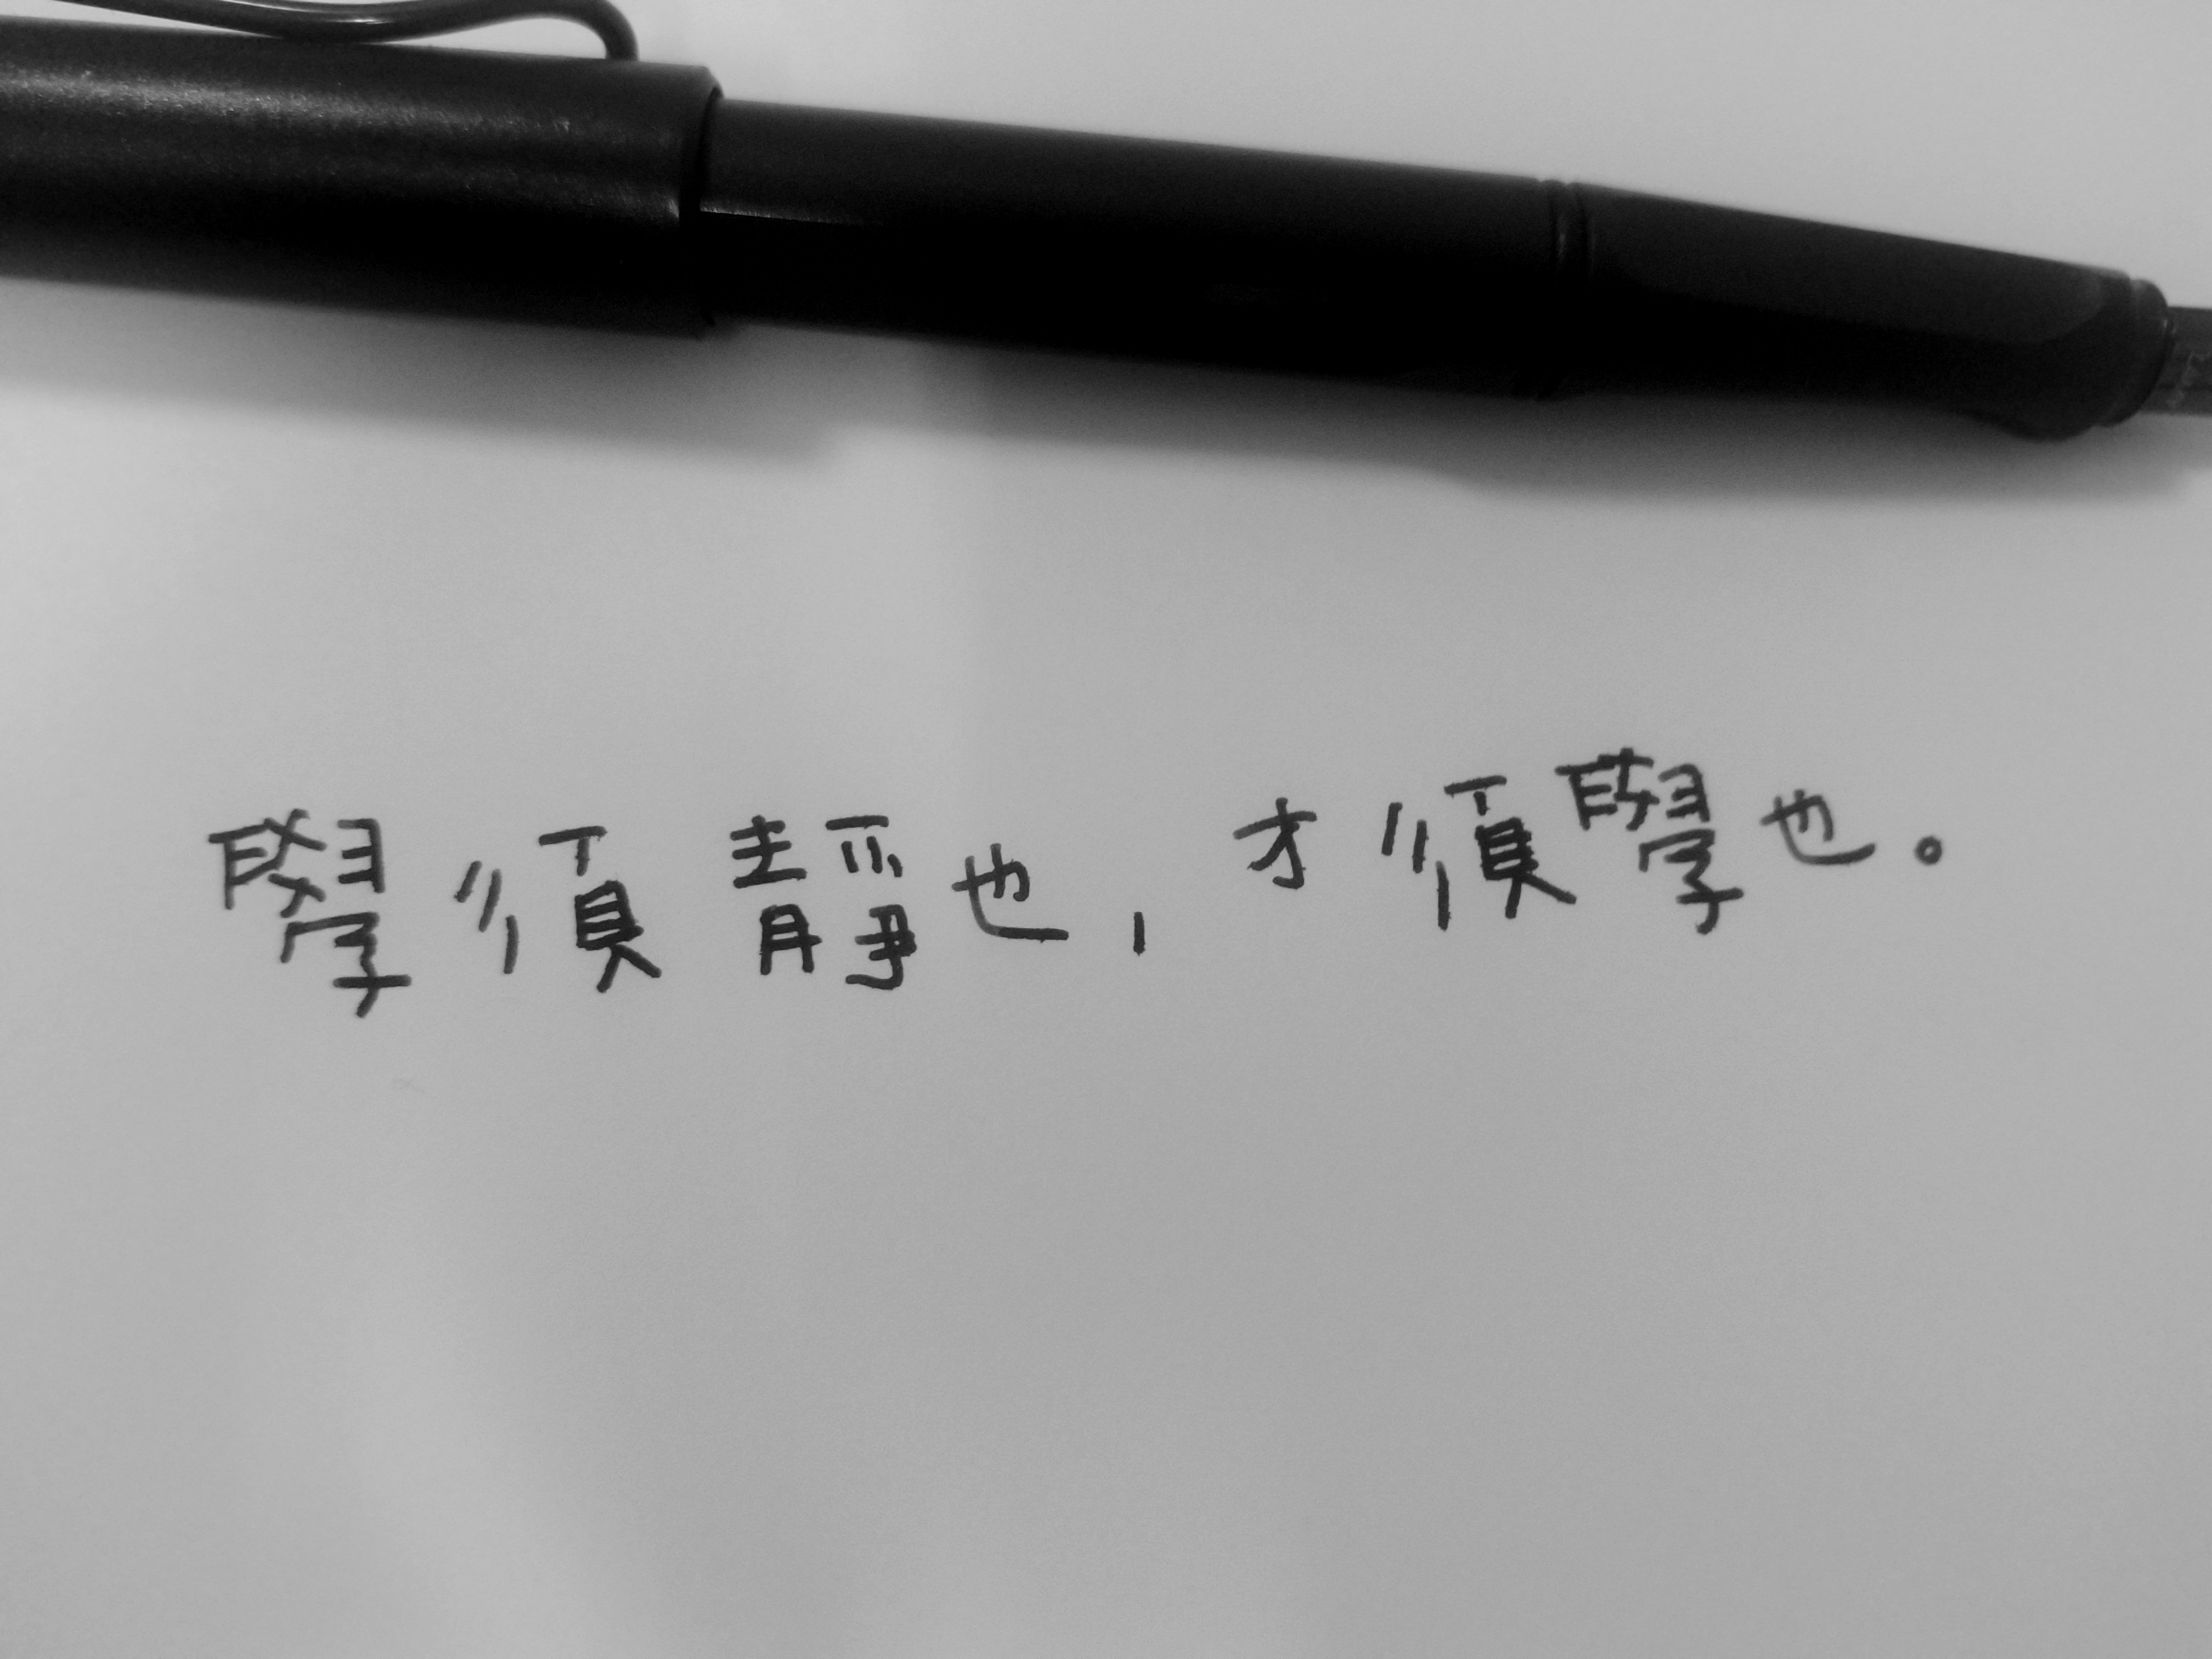 學須靜也，才須學也。